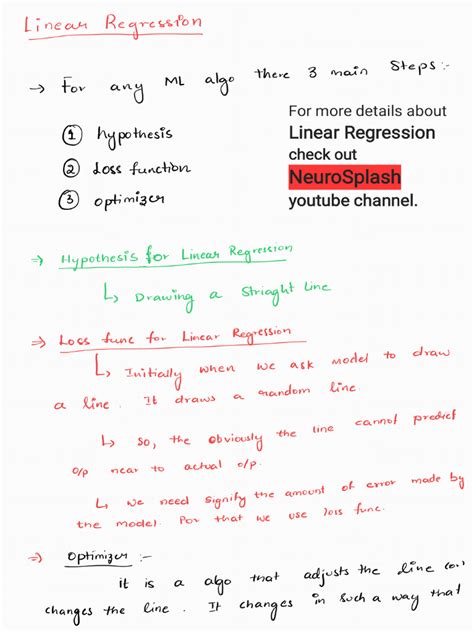 Linear Regression
→ For any ML algo there 3 main steps :-
① hypothesis
② Loss function
③ optimizer
For more details about
Linear Regression
check out
NeuroSplash
youtube channel.
⇒ Hypothesis for Linear Regression
↳ Drawing a Striaght Line
⇒ Loss func for Linear Regression
↳ Initially when we ask model to draw
a line. It draws a random line.
↳ so, the obviously the line cannot predict
o/p near to actual o/p.
↳ we need signify the amount of error made by
the model. For that we use loss func.
⇒ Optimizer :-
it is a algo that adjusts the line (or)
changes the line. It changes in such a way that